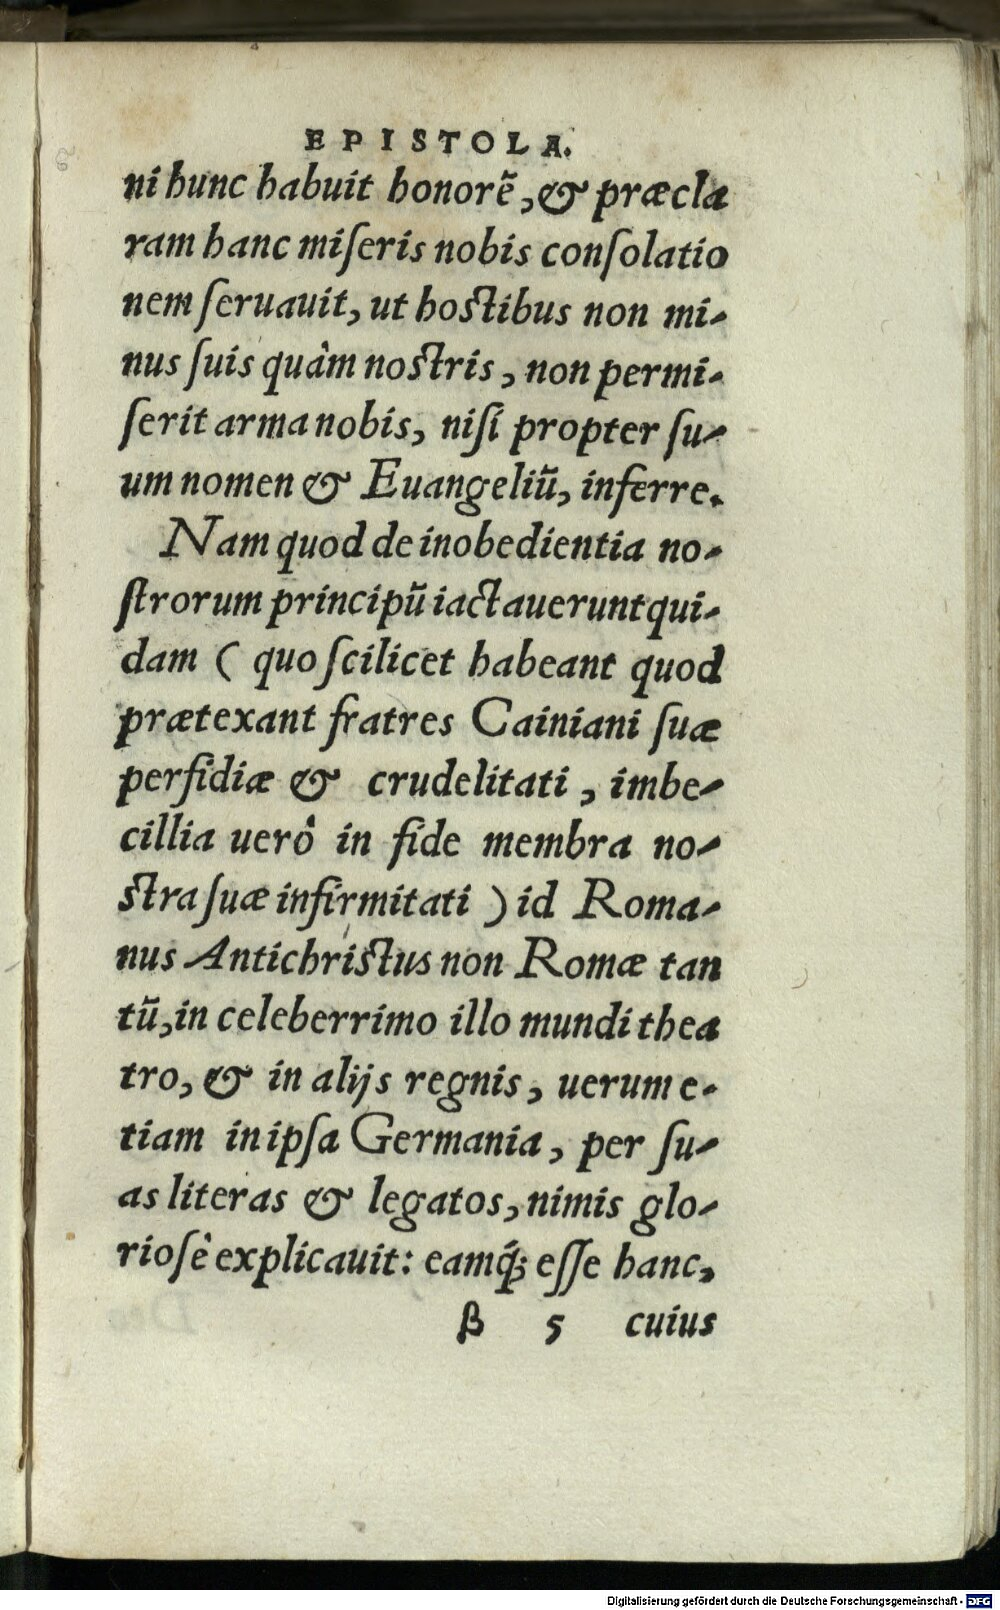 EPISTOLA.
ni hunc habuit honorē, & præcla
ram hanc miſeris nobis conſolatio
nem ſeruauit, ut hoſtibus non mi-
nus ſuis quàm noſtris, non permi-
ſerit arma nobis, niſi propter ſu-
um nomen & Euangeliū, inferre.
Nam quod de inobedientia no-
ſtrorum principū iactauerunt qui-
dam ( quo ſcilicet habeant quod
prætexant fratres Cainiani ſuæ
perfidiæ & crudelitati, imbe-
cillia uerò in fide membra no-
ſtra ſuæ infirmitati ) id Roma-
nus Antichriſtus non Romæ tan
tū, in celeberrimo illo mundi thea
tro, & in alijs regnis, uerum e-
tiam in ipſa Germania, per ſu-
as literas & legatos, nimis glo-
rioſè explicauit: eamq́; eſſe hanc,
β 5 cuius
Digitalisierung gefördert durch die Deutsche Forschungsgemeinschaft - DFG